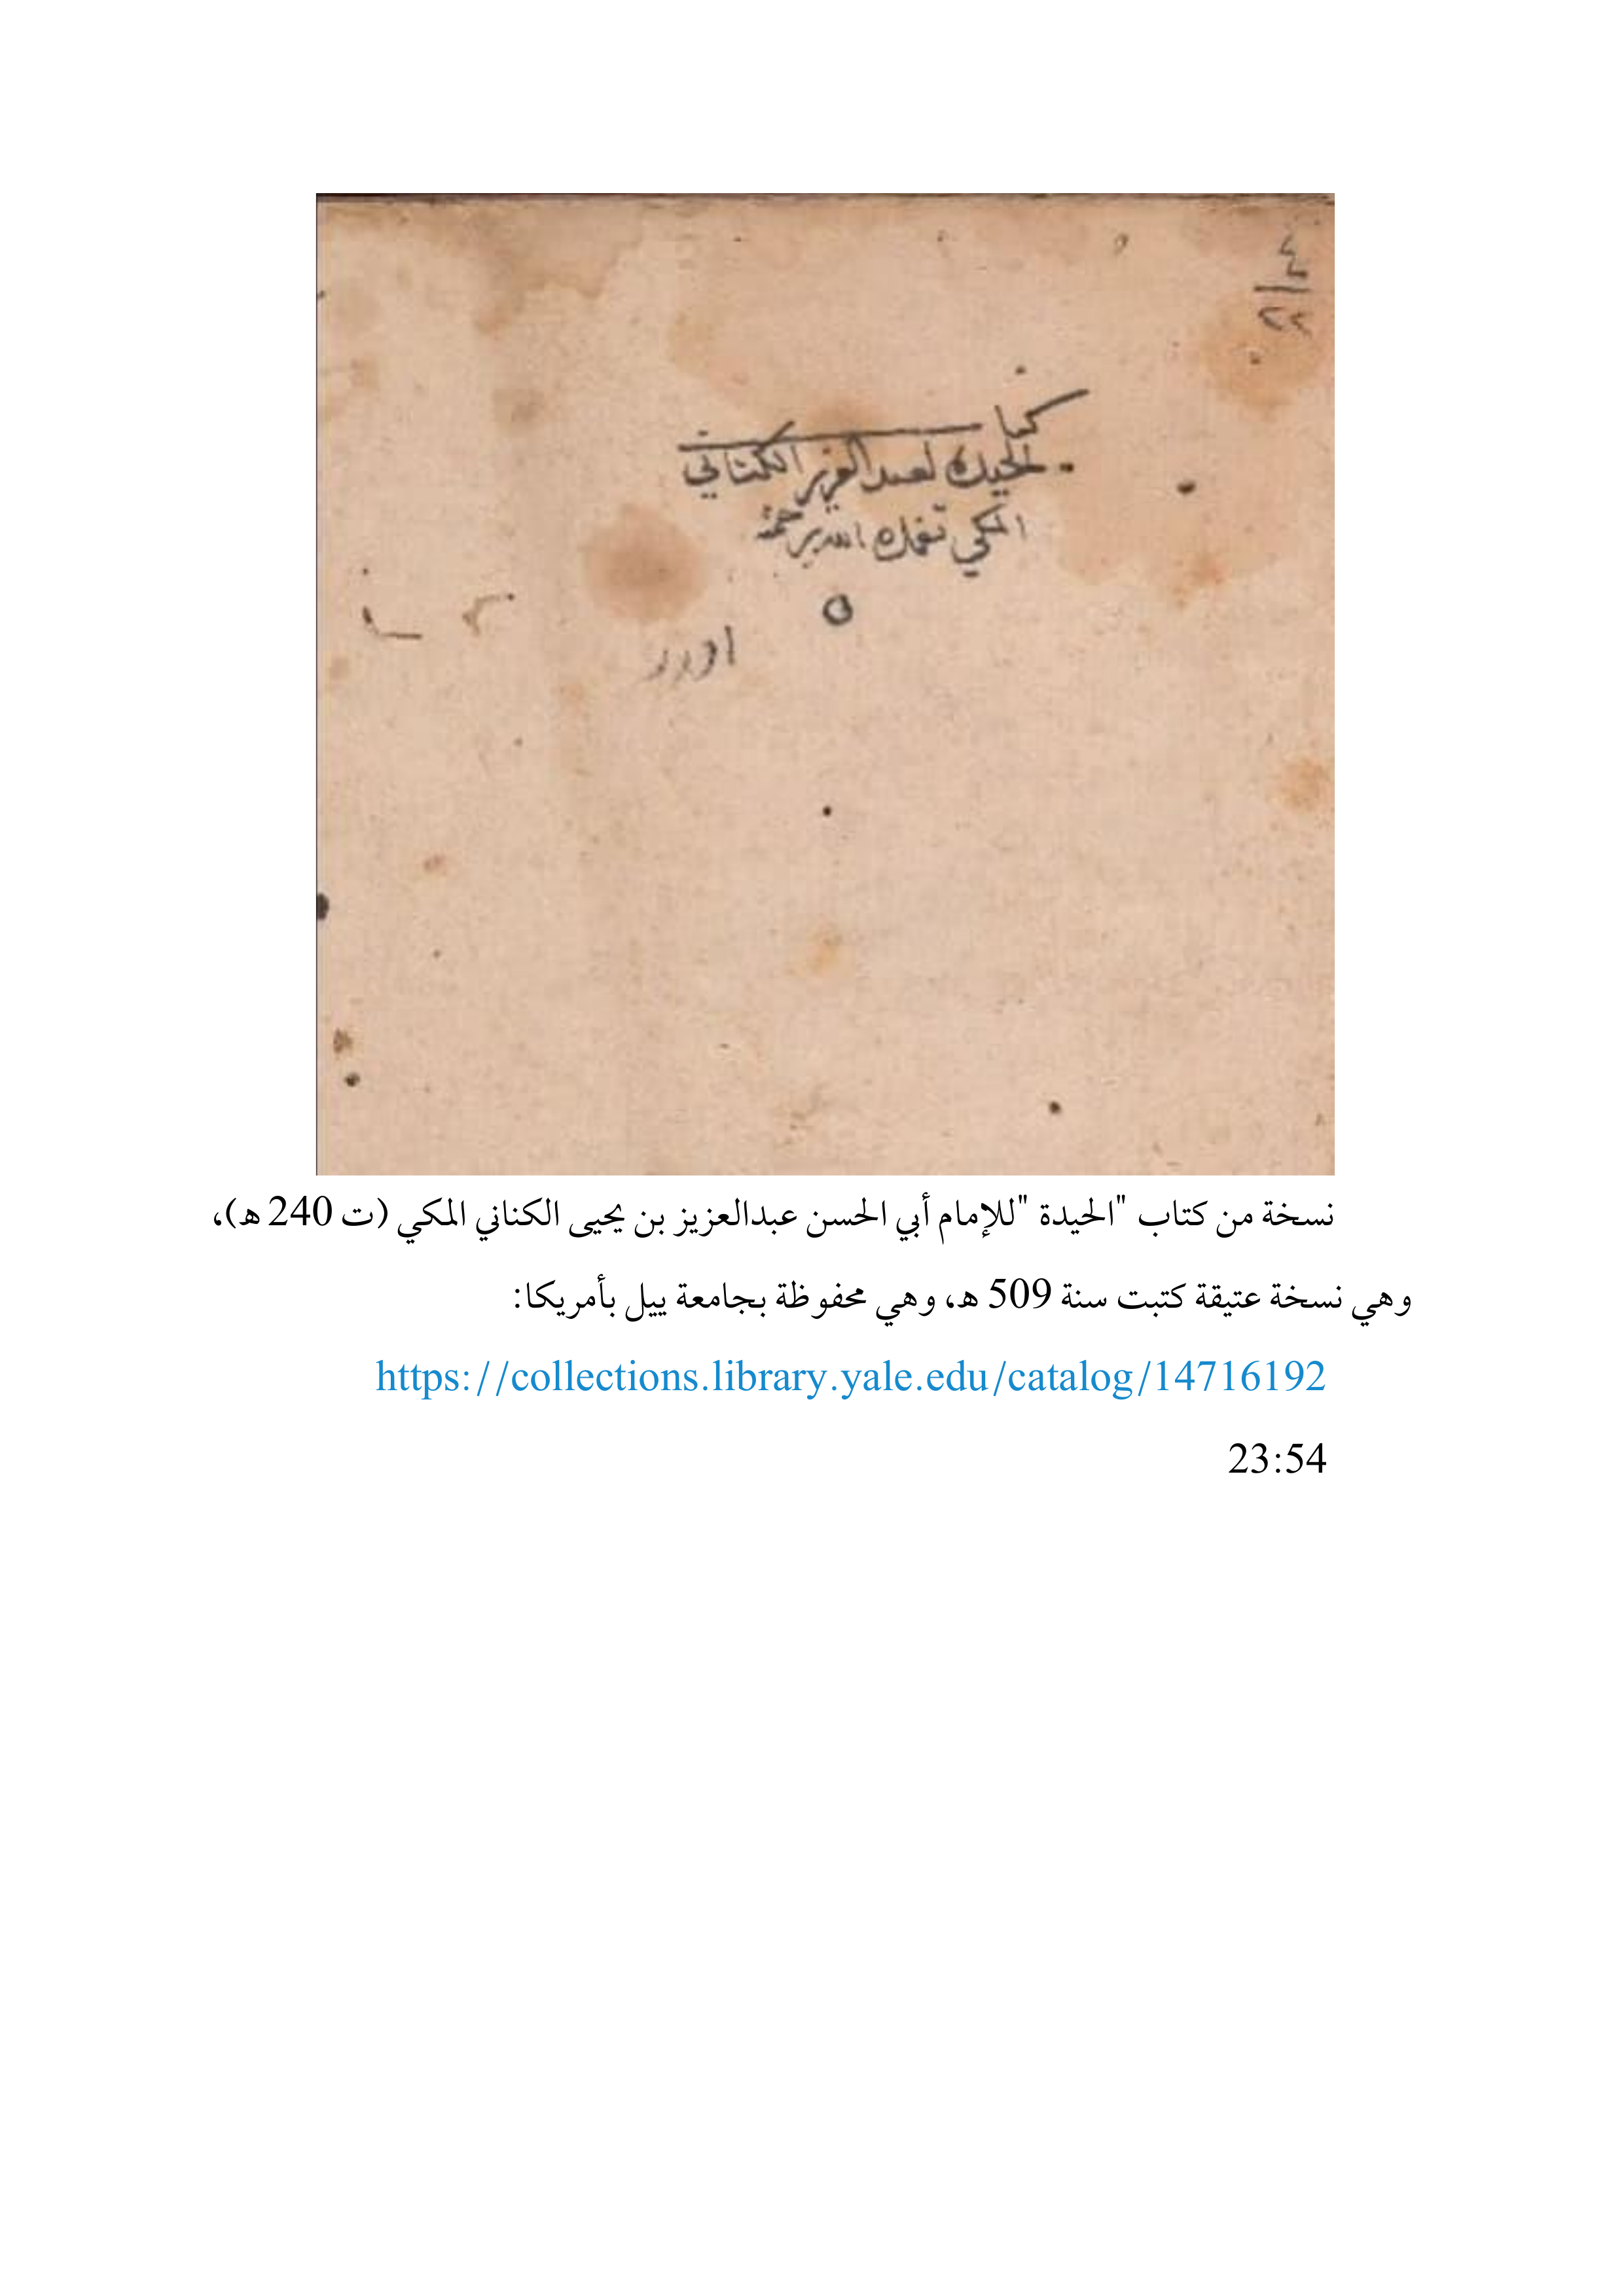 ٤
٢٢
كتاب
الحيدة لعبد العزيز الكناني
المكي تغمده الله برحمته
نسخة من كتاب "الحيدة "للإمام أبي الحسن عبدالعزيز بن يحيى الكناني المكي (ت 240 هـ)،
وهي نسخة عتيقة كتبت سنة 509 هـ، وهي محفوظة بجامعة ييل بأمريكا:
https://collections.library.yale.edu/catalog/14716192
23:54